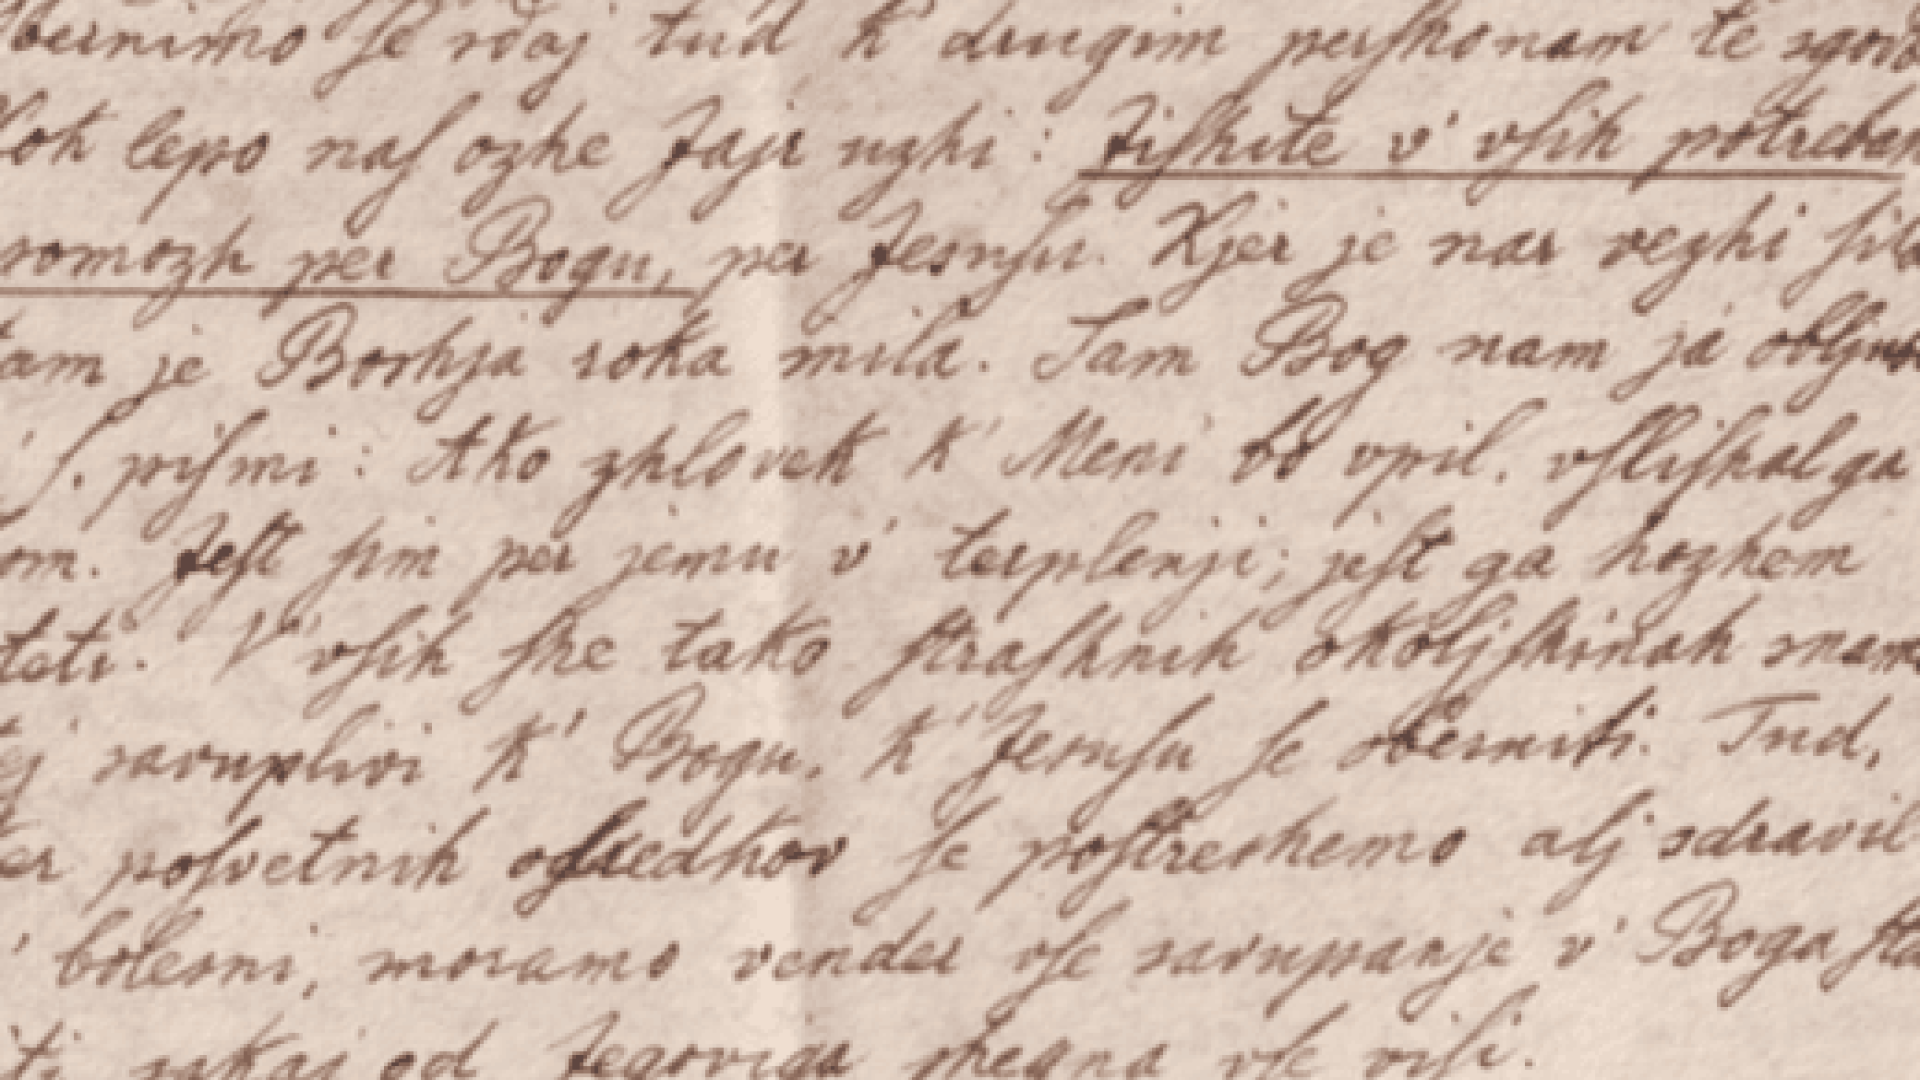 obernimo ſe sdaj tud k' drugim perſhonam te sgodb
Kok lepo naſ ozhe Jaji uzhi: Jiſhite v' vſih potrebah
pomozh per Bogu, per Jesuſu. Kjer je nar vezhi ſila
tam je Boshja roka mila. Sam Bog nam ja obljubi
v' ſ. piſmi: Ako zhlovek k' Meni bo vpil, vſliſhal ga
bom. Jeſt ſim per jemu v' terplenji; jeſt ga hozhem
teti. V' vſih ſhe tako ſtraſhnih okoljſhinah snamo
tej savuplivi k' Bogu, k' Jesuſu ſe oberniti. Tud,
ker poſvetnih ofſredkov ſe poſtreshemo alj sdravil
v' bolesni, moramo vender vſe savupanje v' Boga ſta
iti sakaj od Jegoviga shegna vſe viſi.